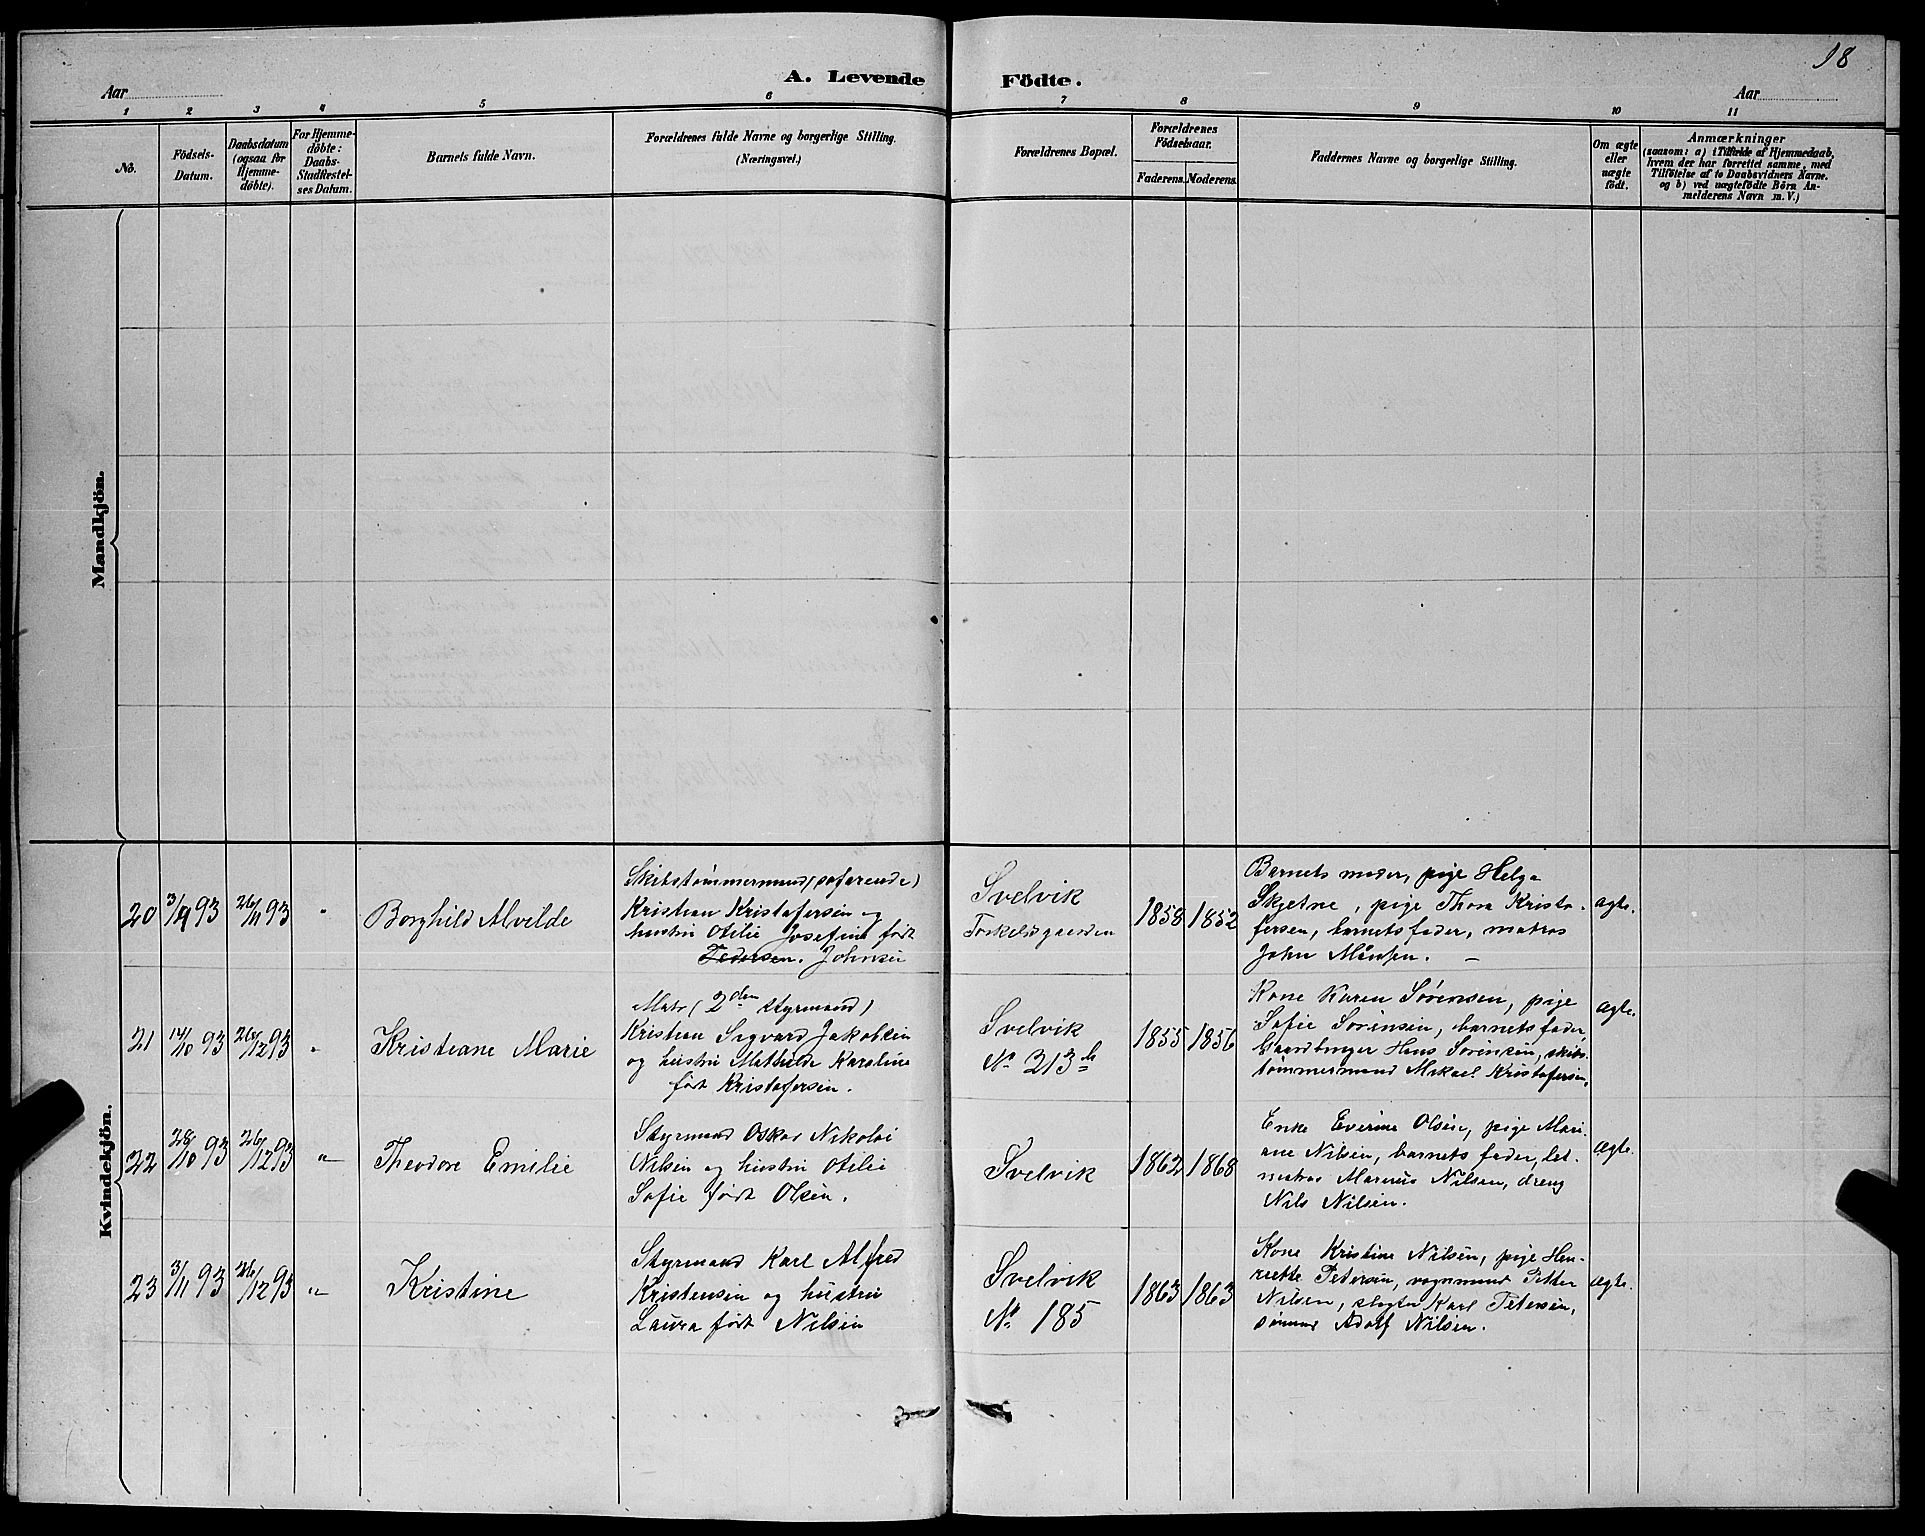 18
A. Levende Födte.
Aar
Aar
1 2 3 4 5 6 7 8 9 10 11
No.
Födsels-
Datum.
Daabsdatum
(ogsaa for
Hjemme-
döbte).
For Hjemme-
döbte:
Daabs-
Stadfæstel-
ses Datum.
Barnets fulde Navn.
Forældrenes fulde Navne og borgerlige Stilling.
(Næringsvei.)
Forældrenes Bopæl.
Forældrenes
Födselsaar.
Faderens. Moderens.
Faddernes Navne og borgerlige Stilling.
Om ægte
eller
uægte
født.
Anmærkninger
(saasom: a) i Tilfælde af Hjemmedaab,
hvem der har forrettet samme, med
Tilföielse af to Daabsvidners Navne.
og b) ved uægtefödte Börn An-
melderens Navn m. V.)
Mandkjön.
Kvindekjön.
20 3/9 93 26/11 93 " Borghild Alvilde
Skibstømmermand (søfarende)
Kristian Kristofersen og
hustru Otilie Josefine født
Pedersen. Johnsen
Svelvik
Torkelsgaarden
1858 1852
Barnets moder, pige Helga
Skjetne, pige Thora Kristo-
fersen, barnets fader, matros
John
ægte.
21 14/10 93 26/12 93 " Kristiane Marie
Matr (2den styrmand)
Kristian Sigvard Jakobsen
og hustru Mathilde Karoline
født Kristofersen.
Svelvik
No 213b
1855 1856
Kone Karen Sørensen, pige
Sofie Sørensen, barnets fader,
Gaardbruger Hans Sørensen, skibs-
tømmermand Mikael Kristofersen.
ægte.
22 28/10 93 26/12 93 " Theodore Emilie
Styrmand Oskar Nikolai
Nilsen og hustru Otilie
Sofie født Olsen.
Svelvik
1862 1868
Enke Everine Olsen, pige Mari-
ane Nilsen, barnets fader, let-
matros Marius Nilsen, dreng
Nils Nilsen.
ægte.
23 3/11 93 26/12 93 " Kristine
Styrmand Karl Alfred
Kristensen og hustru
Laura født Nilsen
Svelvik
No 185
1863 1863
Kone Kristine Nilsen, pige Hen-
riette Petersen, vognmand Petter
Nilsen, Karl Petersen,
sømand Adolf Nilsen.
ægte.